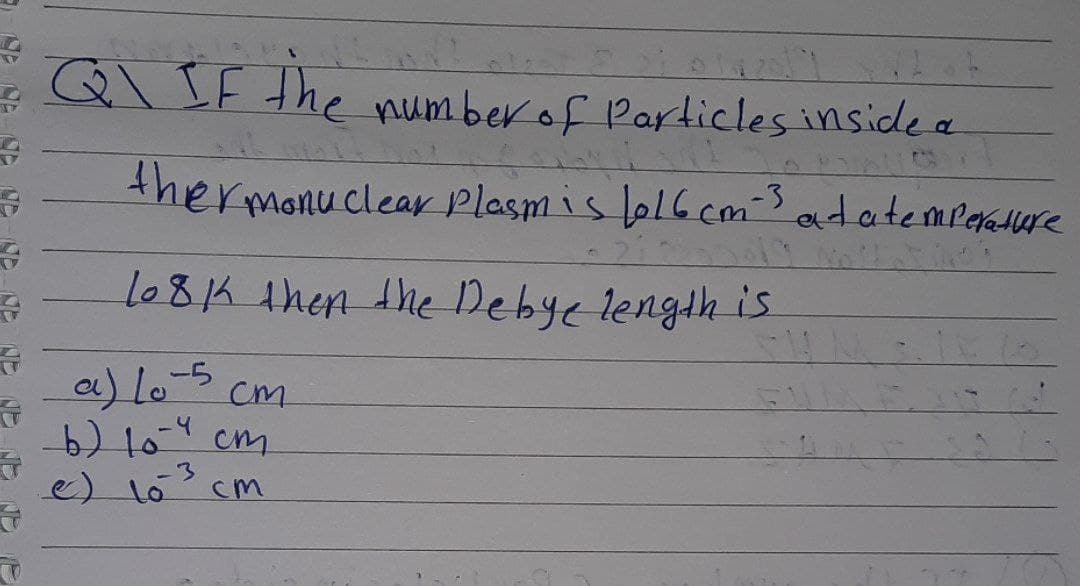 Q\ IF the number of Particles inside a
thermonuclear Plasm is 1016 cm⁻³ at a temperature
108K then the Debye length is
a) 10⁻⁵ cm
b) 10⁻⁴ cm
c) 10⁻³ cm